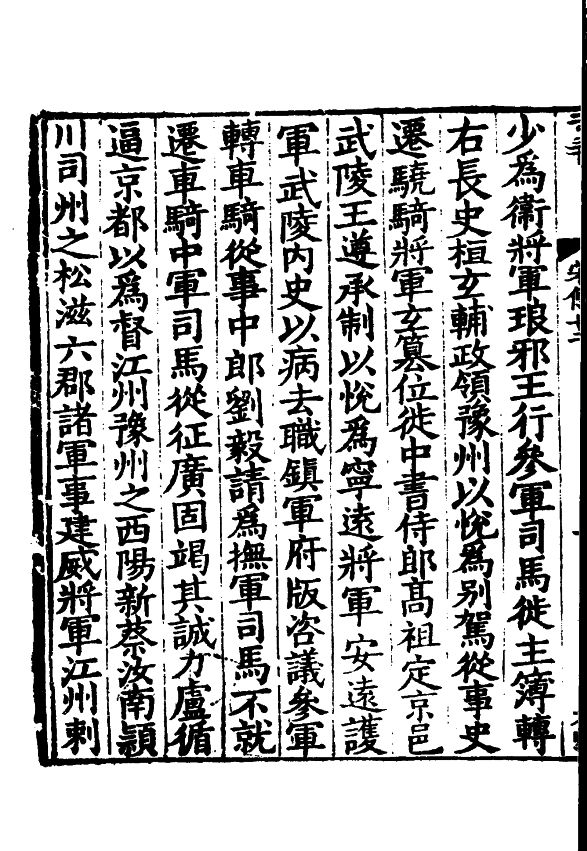 少爲衞將軍琅邪王行參軍司馬徙主簿轉
右長史桓玄輔政領豫州以悅爲别駕從事史
遷驍騎將軍玄篡位徙中書侍郎髙祖定京邑
武陵王遵承制以悅爲寧遠將軍安遠護
軍武陵内史以病去職鎮軍府版咨議參軍
轉車騎從事中郎劉毅請爲撫軍司馬不就
遷車騎中軍司馬從征廣固竭其誠力盧循
逼京都以爲督江州豫州之西陽新蔡汝南潁
川司州之松滋六郡諸軍事建威將軍江州刺